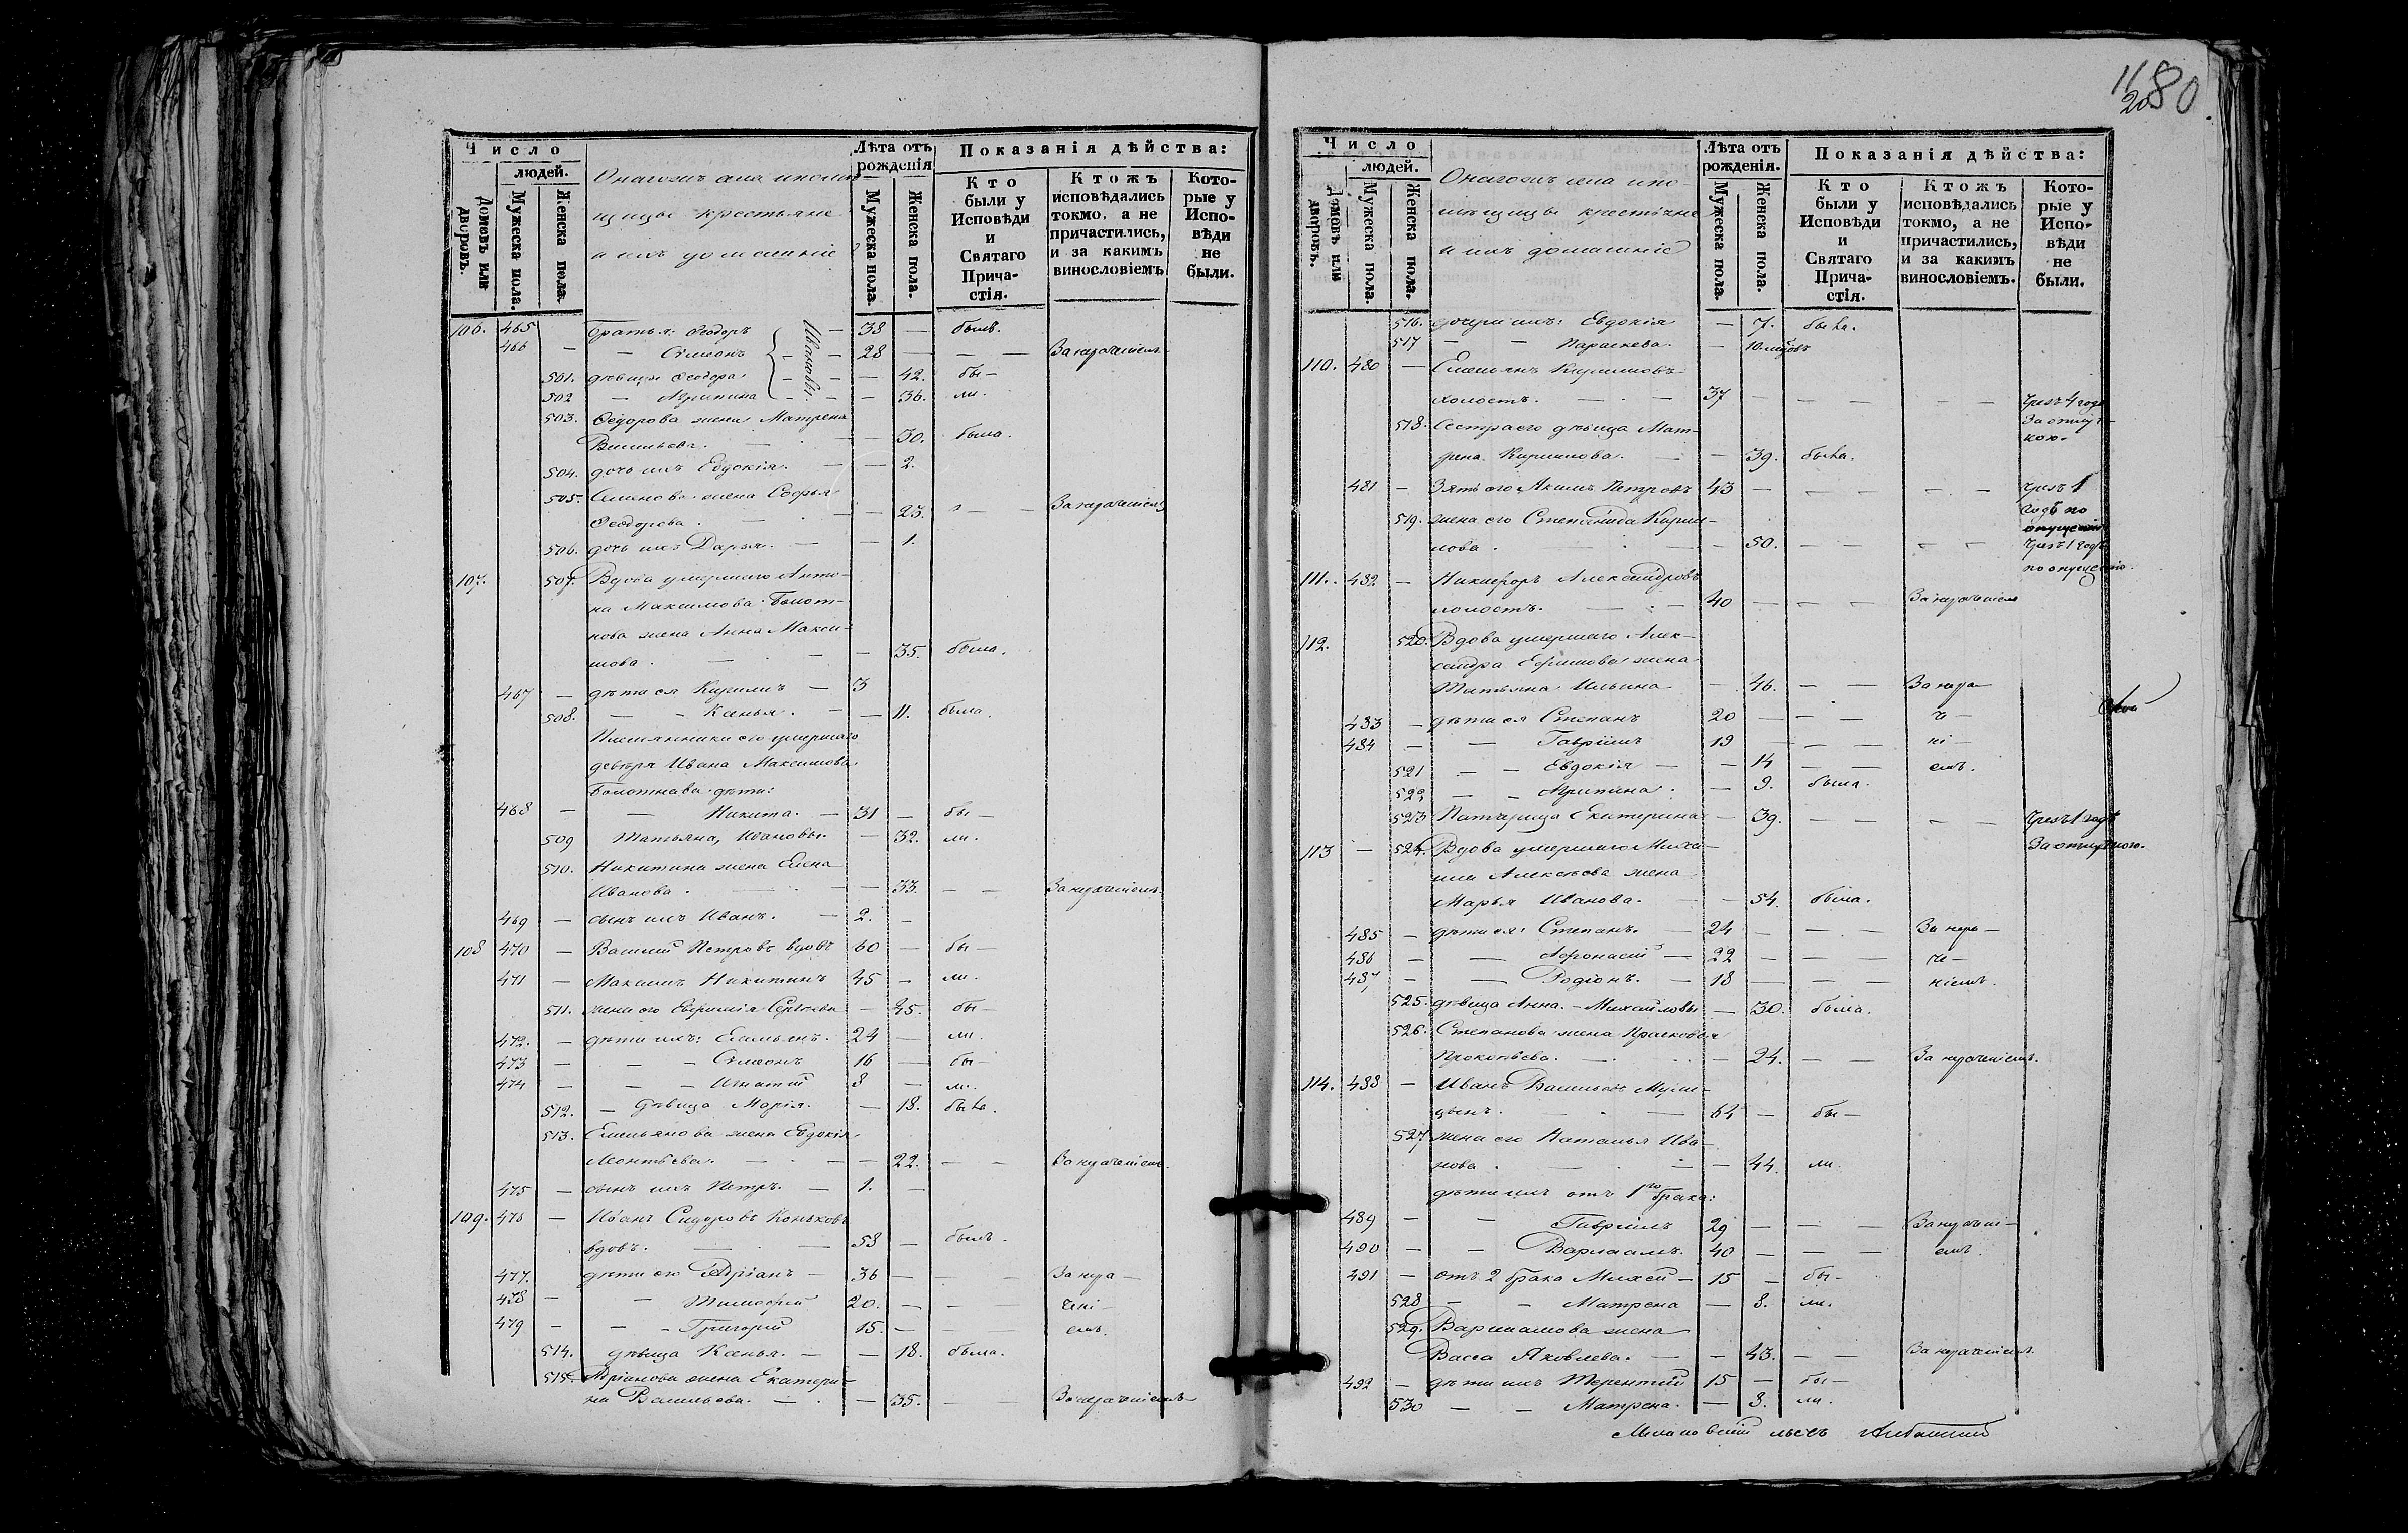 1180
20
Число
людей.
Домовъ или дворовъ.
Мужеска пола.
Женска пола.
Онагожъ села
крестьяне
и ихъ домашніе
Лѣта отъ рожденія
Мужеска пола.
Женска пола.
Показанія дѣйства:
Кто были у Исповѣди и Святаго Причастія.
Ктожъ исповѣдались токмо, а не причастились, и за какимъ винословіемъ
Которые у Исповѣди не были.
106. 465 Братья: Ѳеодоръ — 38 — былъ.
466 — — Сѵмеонъ — 28 — — — За нерачениемъ
Ивановы
501. дѣвица Ѳеодора — — 42. бы—
502 — Агрипина — — 36. ли.
503. Ѳедорова жена Матрена
Васильева. — — 30. была.
504. дочь ихъ Евдокія. — — 2.
505. Симонова жена Софья
Ѳеодорова. — — 23. — — За нерачениемъ
506. дочь ихъ Дарья. — — 1.
107. 507. Вдова умершаго Анто-
на Максимова Болот-
нова жена Анна Макси-
мова. — — 35. была.
467 — дѣти ея Кирилъ — 3
508. — — Ксенья. — — 11. была.
Племянники его умершаго
деверя Ивана Максимова
Болотнава дѣти:
468 — — Никита. — 31 — бы—
509 Татьяна, Ивановы. — 32. ли.
510. Никитина жена Елена
Иванова. — — 33. — — За нерачениемъ.
469 — сынъ ихъ Иванъ. — 2. —
108 470 — Василий Петровъ вдовъ 60 — бы—
471 — Максимъ Никитинъ 45 — ли.
511. жена его Евфимія Сергеева — 45. бы—
472. — дѣти ихъ: Емельянъ. 24 — ли.
473 — — — Сѵмеонъ 16 — бы—
474 — — — Игнатий 8 — ли.
512. — дѣвица Марія. — 18. была.
513. Емельянова жена Евдокія
Леонтьева. — — 22. — — За нерачениемъ.
475 — сынъ ихъ Петръ. — 1. —
109. 476 — Иванъ Сидоровъ Коньковъ
вдовъ. — 58 — былъ.
477. дѣти его Адріанъ — 36 — — — За нера—
478 — — Тимофей 20. — — — чені—
479 — — — Григорий 15. — — — емъ.
514. дѣвица Ксенья. — — 18. была.
515. Адріанова жена Екатери-
на Васильева. — — 35. — — За нерачениемъ
Число
людей.
Домовъ или дворовъ.
Мужеска пола.
Женска пола.
Онагожъ села
крестьяне
и ихъ домашніе
Лѣта отъ рожденія.
Мужеска пола.
Женска пола.
Показанія дѣйства:
Кто были у Исповѣди и Святаго Причастія.
Ктожъ исповѣдались токмо, а не причастились, и за какимъ винословіемъ.
Которые у Исповѣди не были.
516. дочери ихъ: Евдокія — 7. была.
517 — — Параскева. — 10.
110. 480 — Емельянъ Кириловъ
холостъ. — 37 — — — — — Чрезъ 4 года
За отлуч-
кою.
518. Сестра его дѣвица Мат-
рена Кирилова. — — 39. была.
481 — Зять его Акимъ Петровъ 43 — — — — — Чрезъ 1
годъ по
опущенію
519. жена его Степанида Кири-
лова. — — 50. — — — — Чрезъ 1 годъ
по опущенію.
111. 482 — Никифоръ Александровъ
холостъ. — 40 — — — За нерачениемъ
112. 520. Вдова умершаго Алек-
сандра Ефимова жена
Татьяна Ильина — 46. — — За нера—
483 — дѣти ея Степанъ 20 — — — че—
484 — — Гавріилъ 19 — — — ні—
521 — — Евдокія — — 14 — — емъ.
522 — — Агрипина. — 9. была.
523 Падчерица Екатерина — 39. — — — — Чрезъ 1 годъ
За отлучкою.
113 — 524. Вдова умершаго Миха-
ила Алексѣева жена
Марья Иванова. — — 54. была.
485 — дѣти ея: Степанъ. — 24 — — — За нера—
486 — — Афонасій — 22 — — — че—
487 — — Родіонъ. — 18 — — — ніемъ.
525. дѣвица Анна. — Михайловы — 30. была.
526. Степанова жена Прасковья
Прокопьева. — — 24. — — За нерачениемъ.
114. 488 — Иванъ Васильевъ
— 64 — бы—
527 жена его Наталья Ива-
нова. — — 44. ли.
дѣти ихъ отъ 1го брака:
489 — — Гавріилъ 29 — — — За нерачені—
490 — — Варлаамъ. 40 — — — емъ.
491 — отъ 2 брака Михей — 15 — бы—
528 — — Матрена — 8. ли.
529. Варлаамова жена
Васса Яковлева. — — 43. — — За нерачениемъ.
492 — дѣти ихъ Терентий 15 — бы—
530 — — Матрена. — 3. ли.